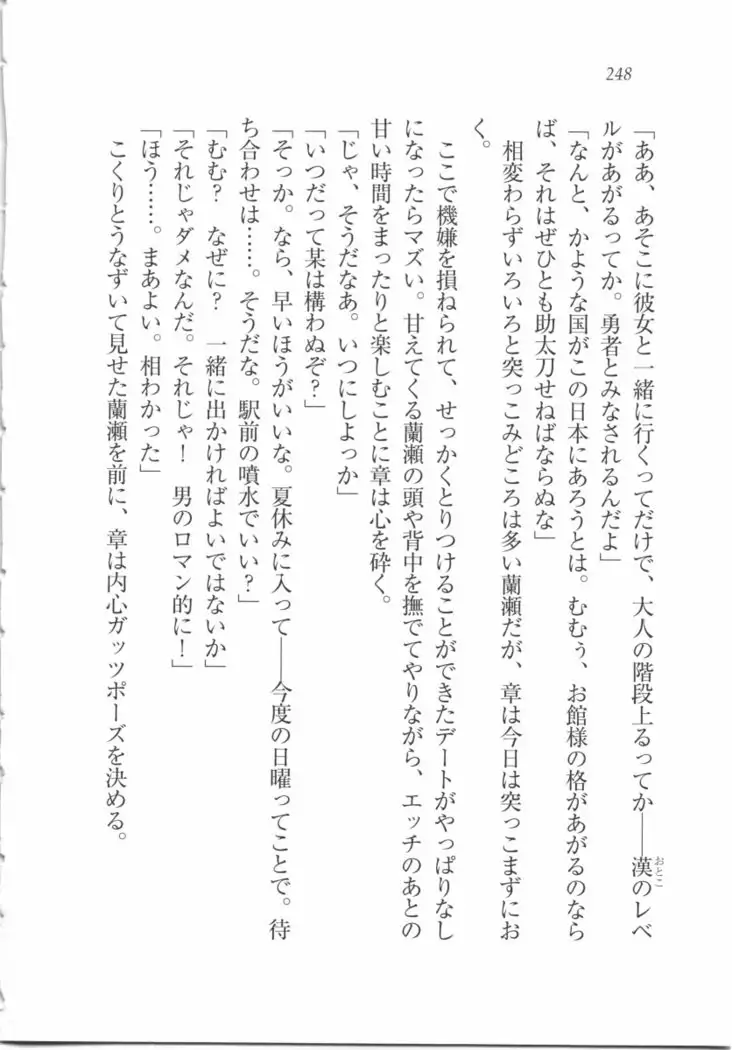 248
「ああ、あそこに彼女と一緒に行くってだけで、大人の階段上るってか――漢のレベ
おとこ
ルがあがるってか。勇者とみなされるんだよ」
「なんと、かような国がこの日本にあろうとは。むむぅ、お館様の格があがるのなら
ば、それはぜひとも助太刀せねばならぬな」
相変わらずいろいろと突っこみどころは多い蘭瀬だが、章は今日は突っこまずにお
く。
ここで機嫌を損ねられて、せっかくとりつけることができたデートがやっぱりなし
になったらマズい。甘えてくる蘭瀬の頭や背中を撫でてやりながら、エッチのあとの
甘い時間をまったりと楽しむことに章は心を砕く。
「じゃ、そうだなあ。いつにしよっか」
「いつだって某は構わぬぞ？」
「そっか。なら、早いほうがいいな。夏休みに入って――今度の日曜ってことで。待
ち合わせは……。そうだな。駅前の噴水でいい？」
「むむ？　なぜに？　一緒に出かければよいではないか」
「それじゃダメなんだ。それじゃ！　男のロマン的に！」
「ほう……。まあよい。相わかった」
こくりとうなずいて見せた蘭瀬を前に、章は内心ガッツポーズを決める。